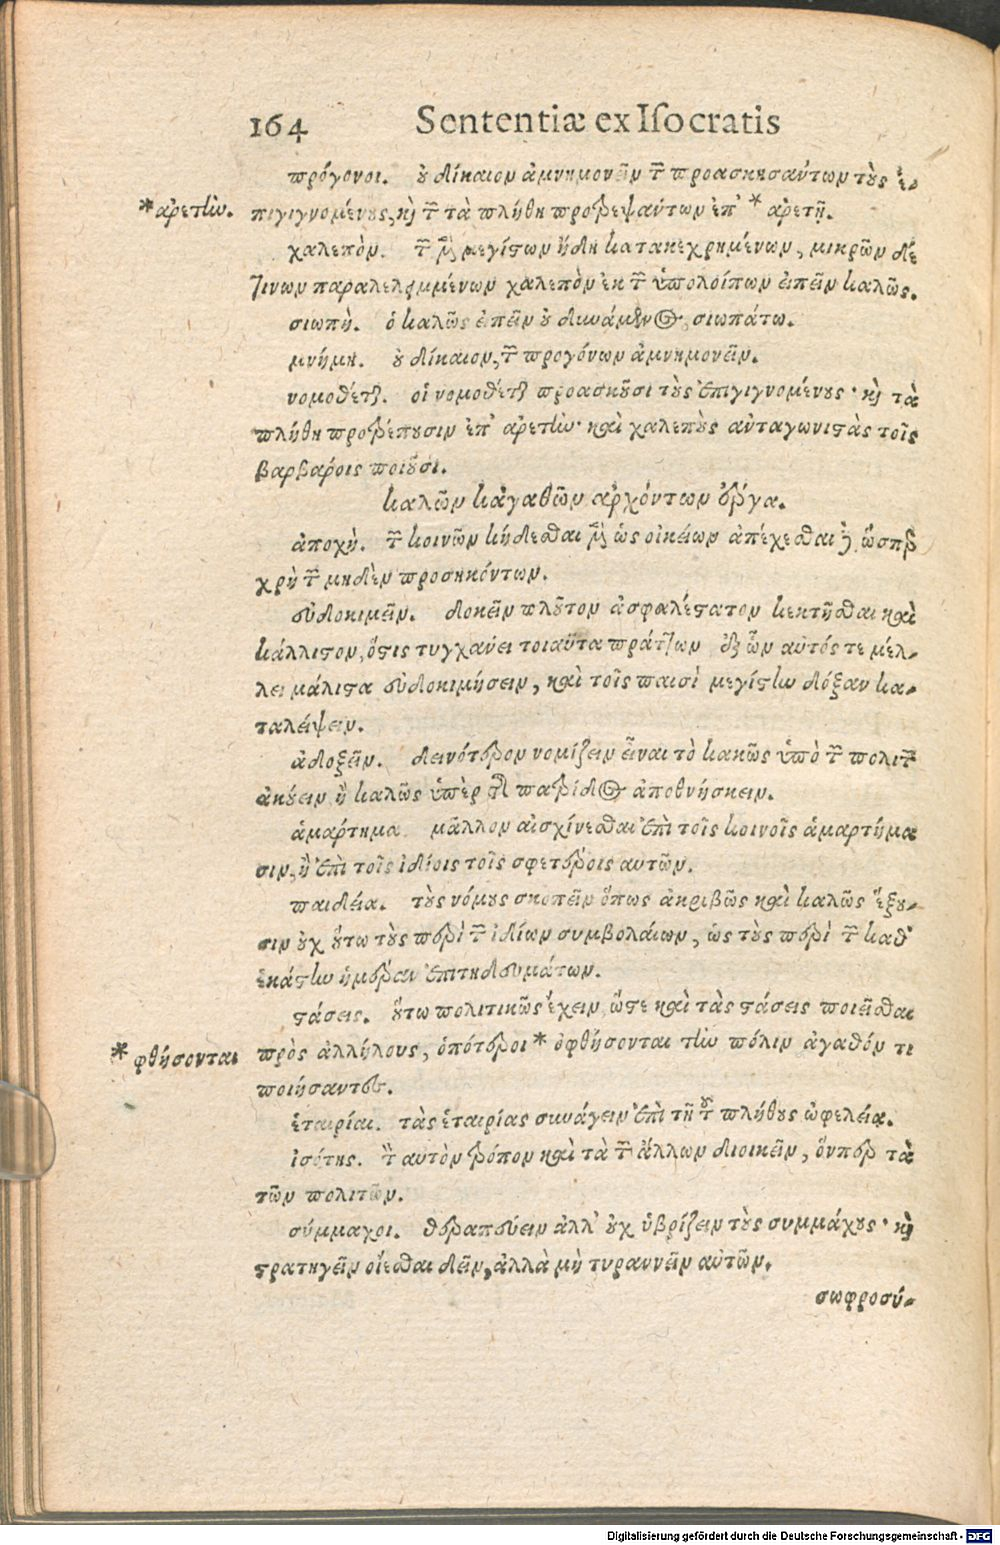 164 Sententiæ ex Iſocratis
πρόγονοι. οὐ δίκαιον ἀμνημονεῖν τῶν προασκησάντων τοὺς ἐ-
*ἀρετὴν. πιγιγνομένους, καὶ τῶν τὰ πλήθη προτρεψάντων ἐπ' * ἀρετῇ.
χαλεπὸν. τῶν μὲν μεγίστων ἤδη κατακεχρημένων, μικρῶν δέ
τινων παραλελειμμένων χαλεπὸν ἐκ τῶν ὑπολοίπων εἰπεῖν καλῶς.
σιωπὴ. ὁ καλῶς εἰπεῖν οὐ δυνάμενος, σιωπάτω.
μνήμη. οὐ δίκαιον, τῶν προγόνων ἀμνημονεῖν.
νομοθέται. οἱ νομοθέται προασκοῦσι τοὺς ἐπιγιγνομένους· καὶ τὰ
πλήθη προτρέπουσιν ἐπ' ἀρετὴν· καὶ χαλεποὺς ἀνταγωνιστὰς τοῖς
βαρβάροις ποιοῦσι.
καλῶν κἀγαθῶν ἀρχόντων ἔργα.
ἀποχὴ. τῶν κοινῶν κήδεσθαι μὲν ὡς οἰκείων ἀπέχεσθαι δὲ, ὥσπερ
χρὴ τῶν μηδὲν προσηκόντων.
εὐδοκιμεῖν. δοκεῖν πλοῦτον ἀσφαλέστατον κεκτῆσθαι καὶ
κάλλιστον, ὅστις τυγχάνει τοιαῦτα πράττων ἐξ ὧν αὐτός τε μέλ-
λει μάλιστα εὐδοκιμήσειν, καὶ τοῖς παισὶ μεγίστην δόξαν κα-
ταλείψειν.
ἀδοξεῖν. δεινότερον νομίζειν εἶναι τὸ κακῶς ὑπὸ τῶν πολιτῶν
ἀκούειν ἢ καλῶς ὑπὲρ τῆς πατρίδος ἀποθνήσκειν.
ἁμάρτημα. μᾶλλον αἰσχύνεσθαι ἐπὶ τοῖς κοινοῖς ἁμαρτήμα
σιν, ἢ ἐπὶ τοῖς ἰδίοις τοῖς σφετέροις αὐτῶν.
παιδεία. τοὺς νόμους σκοπεῖν ὅπως ἀκριβῶς καὶ καλῶς ἕξου-
σιν οὐχ οὕτω τοὺς περὶ τῶν ἰδίων συμβολαίων, ὡς τοὺς περὶ τῶν καθ'
ἑκάστην ἡμέραν ἐπιτηδευμάτων.
στάσεις. οὕτω πολιτικῶς ἔχειν, ὥστε καὶ τὰς στάσεις ποιεῖσθαι
* φθήσονται πρὸς ἀλλήλους, ὁπότεροι * ὀφθήσονται τὴν πόλιν ἀγαθόν τι
ποιήσαντες.
ἑταιρίαι. τὰς ἑταιρίας συνάγειν ἐπὶ τῇ τοῦ πλήθους ὠφελείᾳ.
ἰσότης. τὸν αὐτὸν τρόπον καὶ τὰ τῶν ἄλλων διοικεῖν, ὅνπερ τὰ
τῶν πολιτῶν.
σύμμαχοι. θεραπεύειν ἀλλ' οὐχ ὑβρίζειν τοὺς συμμάχους· καὶ
στρατηγεῖν οἴεσθαι δεῖν, ἀλλὰ μὴ τυραννεῖν αὐτῶν.
σωφροσύ-
Digitalisierung gefördert durch die Deutsche Forschungsgemeinschaft - DFG